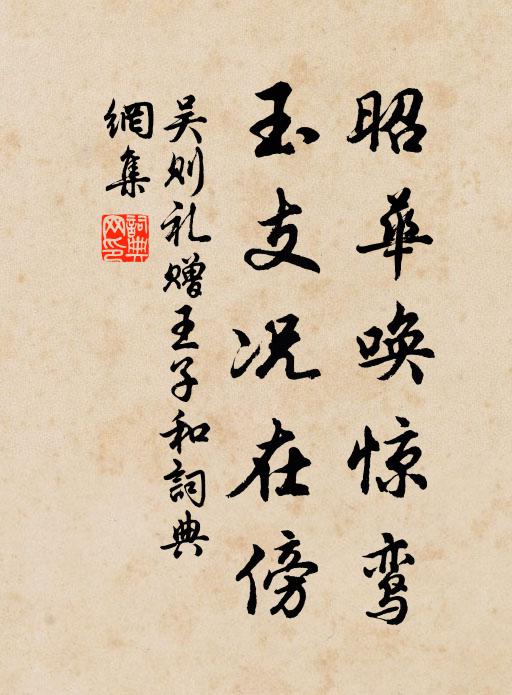 昭华唤惊鸾
玉支况在傍
吴则礼赠王子和詞典
網集
詞典网印